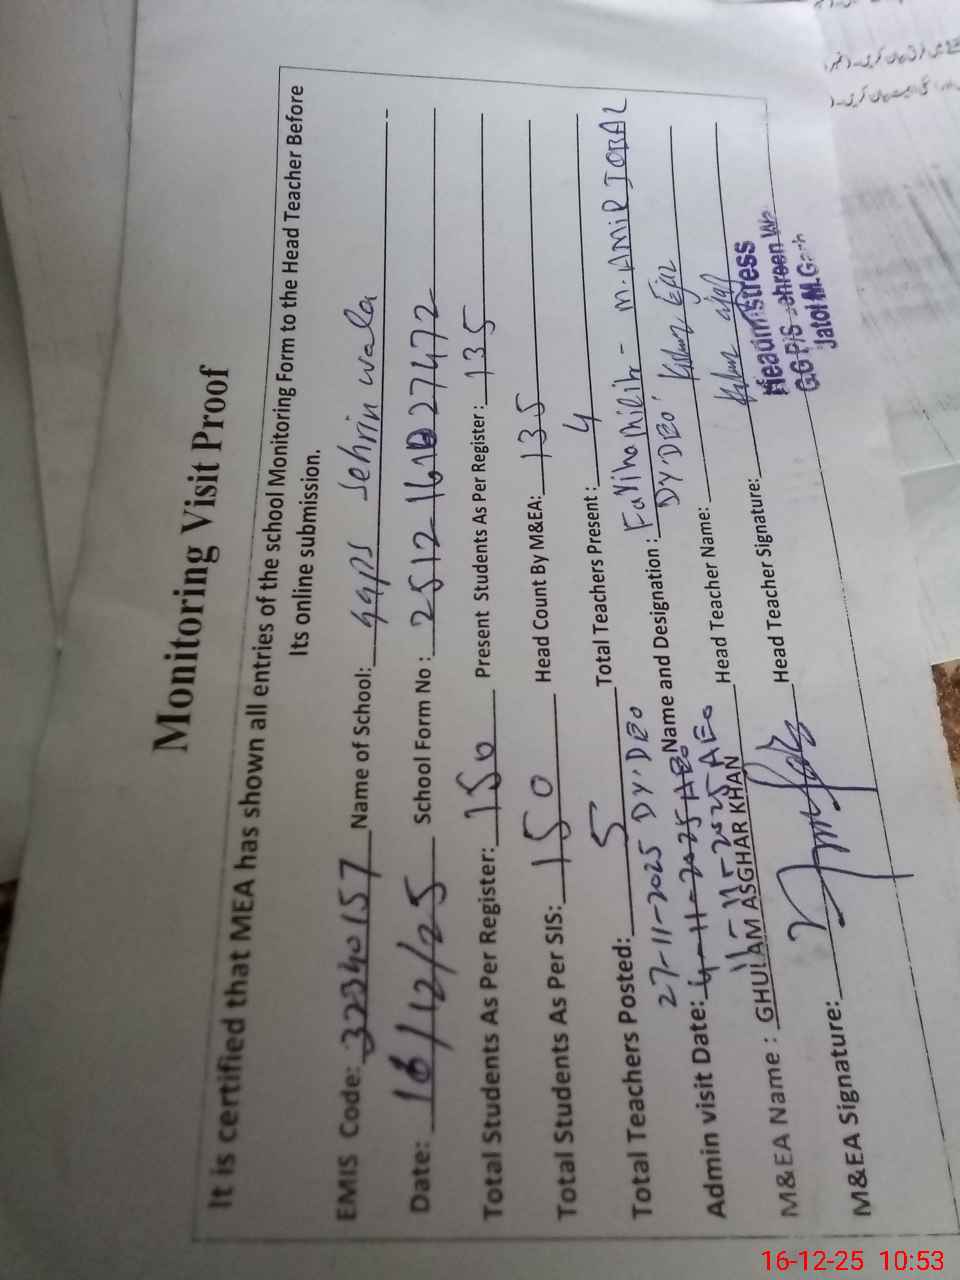 Monitoring Visit Proof
It is certified that MEA has shown all entries of the school Monitoring Form to the Head Teacher Before
Its online submission.
EMIS Code: 32340157 Name of School: ggps Sehrin wala
Date: 16/12/25 School Form No :
Total Students As Per Register: 150 Present Students As Per Register: 135
Total Students As Per SIS: 150 Head Count By M&EA: 135
Total Teachers Posted: 5 Total Teachers Present : 4
27-11-2025 DY.DEO Name and Designation : - M. AMIR IQBAL
DY DEO
Admin visit Date: 4-11-2025 AEO
11-11-2025 AEO Head Teacher Name:
M&EA Name : GHULAM ASGHAR KHAN
M&EA Signature: Head Teacher Signature:
Headmistress
GGP/S
Jatoi M.Garh
16-12-25 10:53